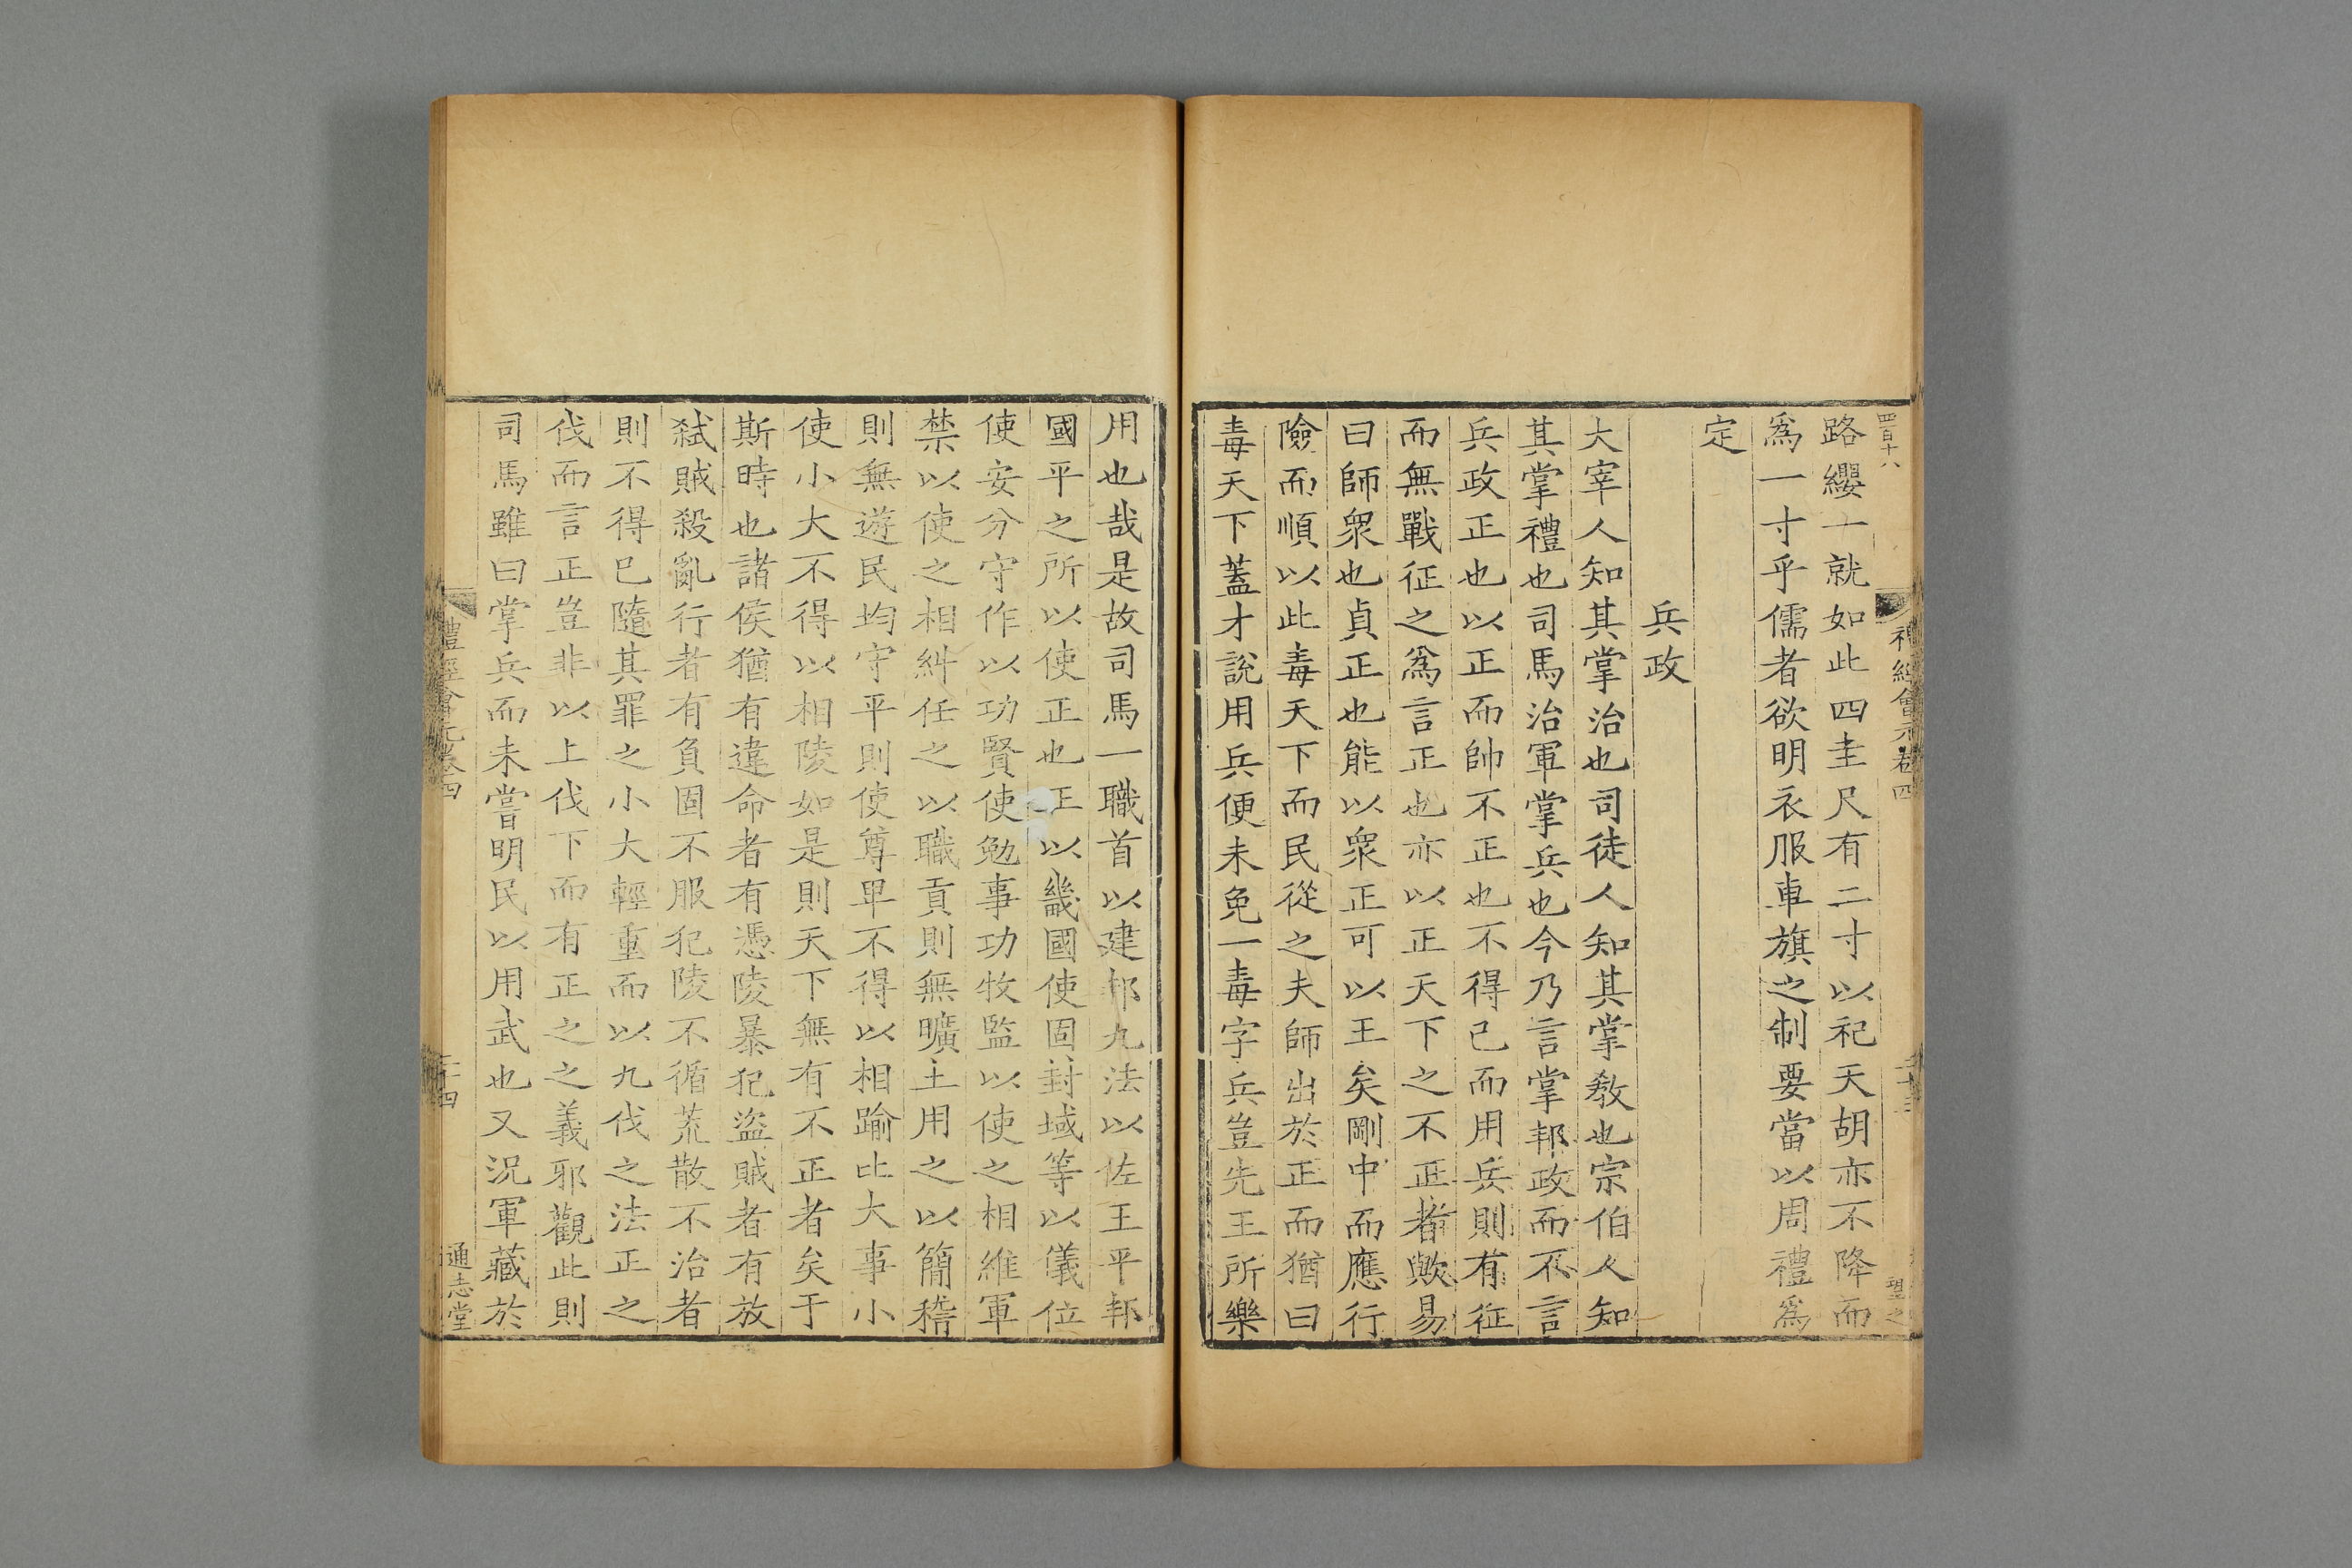 四百十八
路纓一就如此四圭尺有二寸以祀天胡亦不降而
爲一寸乎儒者欲明衣服車旗之制要當以周禮爲
定
兵政
大宰人知其掌治也司徒人知其掌教也宗伯人知
其掌禮也司馬治軍掌兵也今乃言掌邦政而不言
兵政正也以正而帥不正也不得已而用兵則有征
而無戰征之爲言正也亦以正天下之不正者歟易
曰師衆也貞正也能以衆正可以王矣剛中而應行
險而順以此毒天下而民從之夫師出於正而猶曰
毒天下蓋才說用兵便未免一毒字兵豈先王所樂
用也哉是故司馬一職首以建邦九法以佐王平邦
國平之所以使正也正以畿國使固封域等以儀位
使安分守作以功賢使勉事功牧監以使之相維軍
禁以使之相糾任之以職貢則無曠土用之以簡稽
則無遊民均守平則使尊卑不得以相踰比大事小
使小大不得以相陵如是則天下無有不正者矣于
斯時也諸侯猶有違命者有憑陵暴犯盜賊者有放
弑賊殺亂行者有負固不服犯陵不循荒散不治者
則不得已隨其罪之小大輕重而以九伐之法正之
伐而言正豈非以上伐下而有正之之義邪觀此則
司馬雖曰掌兵而未嘗明民以用武也又況軍藏於
禮經會元卷四
二十四
通志堂